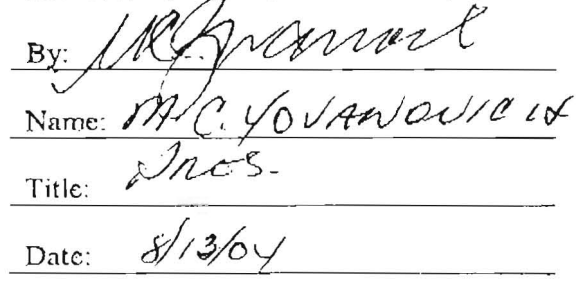 By:
Name: M.C. YOVANOVICH
Title: Pres.
Date: 8/13/04